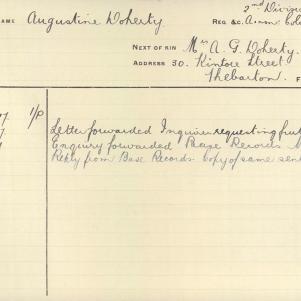 2nd Divisi
NAME Augustine Doherty REG &C. Amm Col
NEXT OF KIN Mrs A. G. Doherty.
ADDRESS 30. Kintore Street
Thebarton.
1/P Letter forwarded Inquirer requesting
Enquiry forwarded Base Records
Reply from Base Records. Copy of same sent